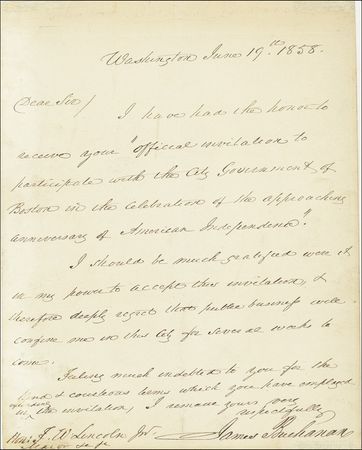 Washington June 19th 1858.
Dear Sir/
I have had the honor to
receive your "official invitation to
participate with the City Government of
Boston in the celebration of the approaching
anniversary of American Independence".
I should be much gratified were it
in my power to accept this invitation, &
therefore deeply regret that public business will
confine me in this City for several weeks to
come.
Feeling much indebted to you for the
kind & courteous terms which you have employed
in the invitation, I remain yours very
respectfully
James Buchanan
Hon: F. W. Lincoln Jr